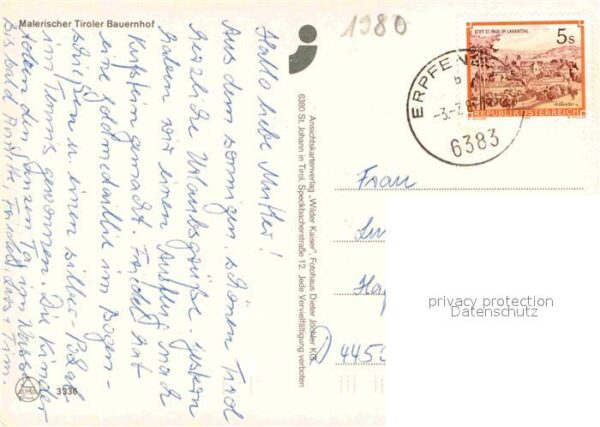 Malerischer Tiroler Bauernhof
1980
Hallo liebe Mutter!
Aus dem sonnigen, schönen Tirol
herzliche Urlaubsgrüße. gestern
haben wir einen Ausflug nach
Kufstein gemacht. Friedel hat
eine goldmedaillie im Bogen-
schießen u. einen silber-Pokal
im Tennis gewonnen. Die Kinder
den ganzen Tag im
Bis bald
Tim.
3336
Ansichtskartenverlag „Wilder Kaiser“, Fotohaus Dieter Jöchler KG,
6380 St. Johann in Tirol, Speckbacherstraße 12. Jede Vervielfältigung verboten
STIFT ST. PAUL IM LAVANTTAL
5 S
REPUBLIK ÖSTERREICH
ERPFEN
6383
Frau
445
privacy protection
Datenschutz